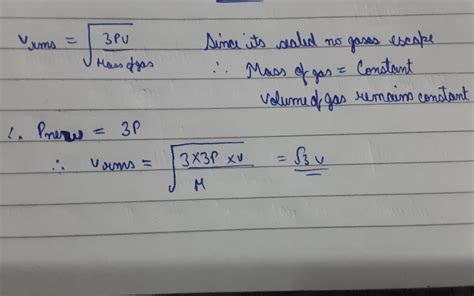 Vrms = √3PV / Mass of gas Since its sealed no gases escape
∴ Mass of gas = Constant
Volume of gas remains constant
∴ Pnew = 3P
∴ vrms = √3×3P×v / M = √3 v